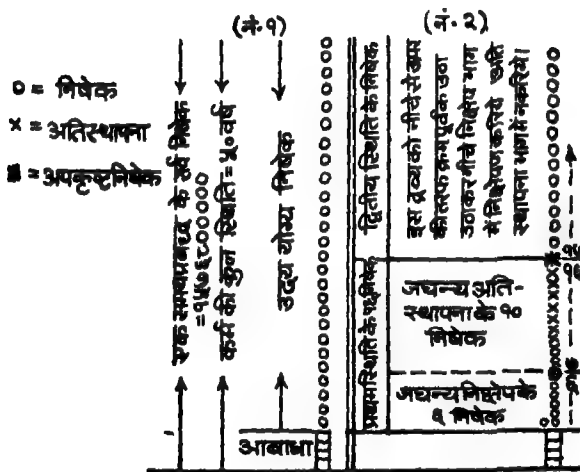 (नं. १)
(नं. २)
० = निषेक
× = अतिस्थापना
= अपकृष्ट निषेक
एक समयप्रबद्ध के सर्व निषेक
=१५७६८०००००
कर्म की कुल स्थिति = ५० वर्ष
उदय योग्य निषेक
आबाधा
द्वितीय स्थिति के निषेक
प्रथम स्थिति के १६ निषेक
इस द्रव्य को नीचे से ऊपर
की तरफ क्रमपूर्वक उठा
उठाकर नीचे निक्षेप भाग
में निक्षेपण करिये अति
स्थापना भाग में न करिये।
जघन्य अति-
स्थापना के १०
निषेक
जघन्य निक्षेप के
६ निषेक